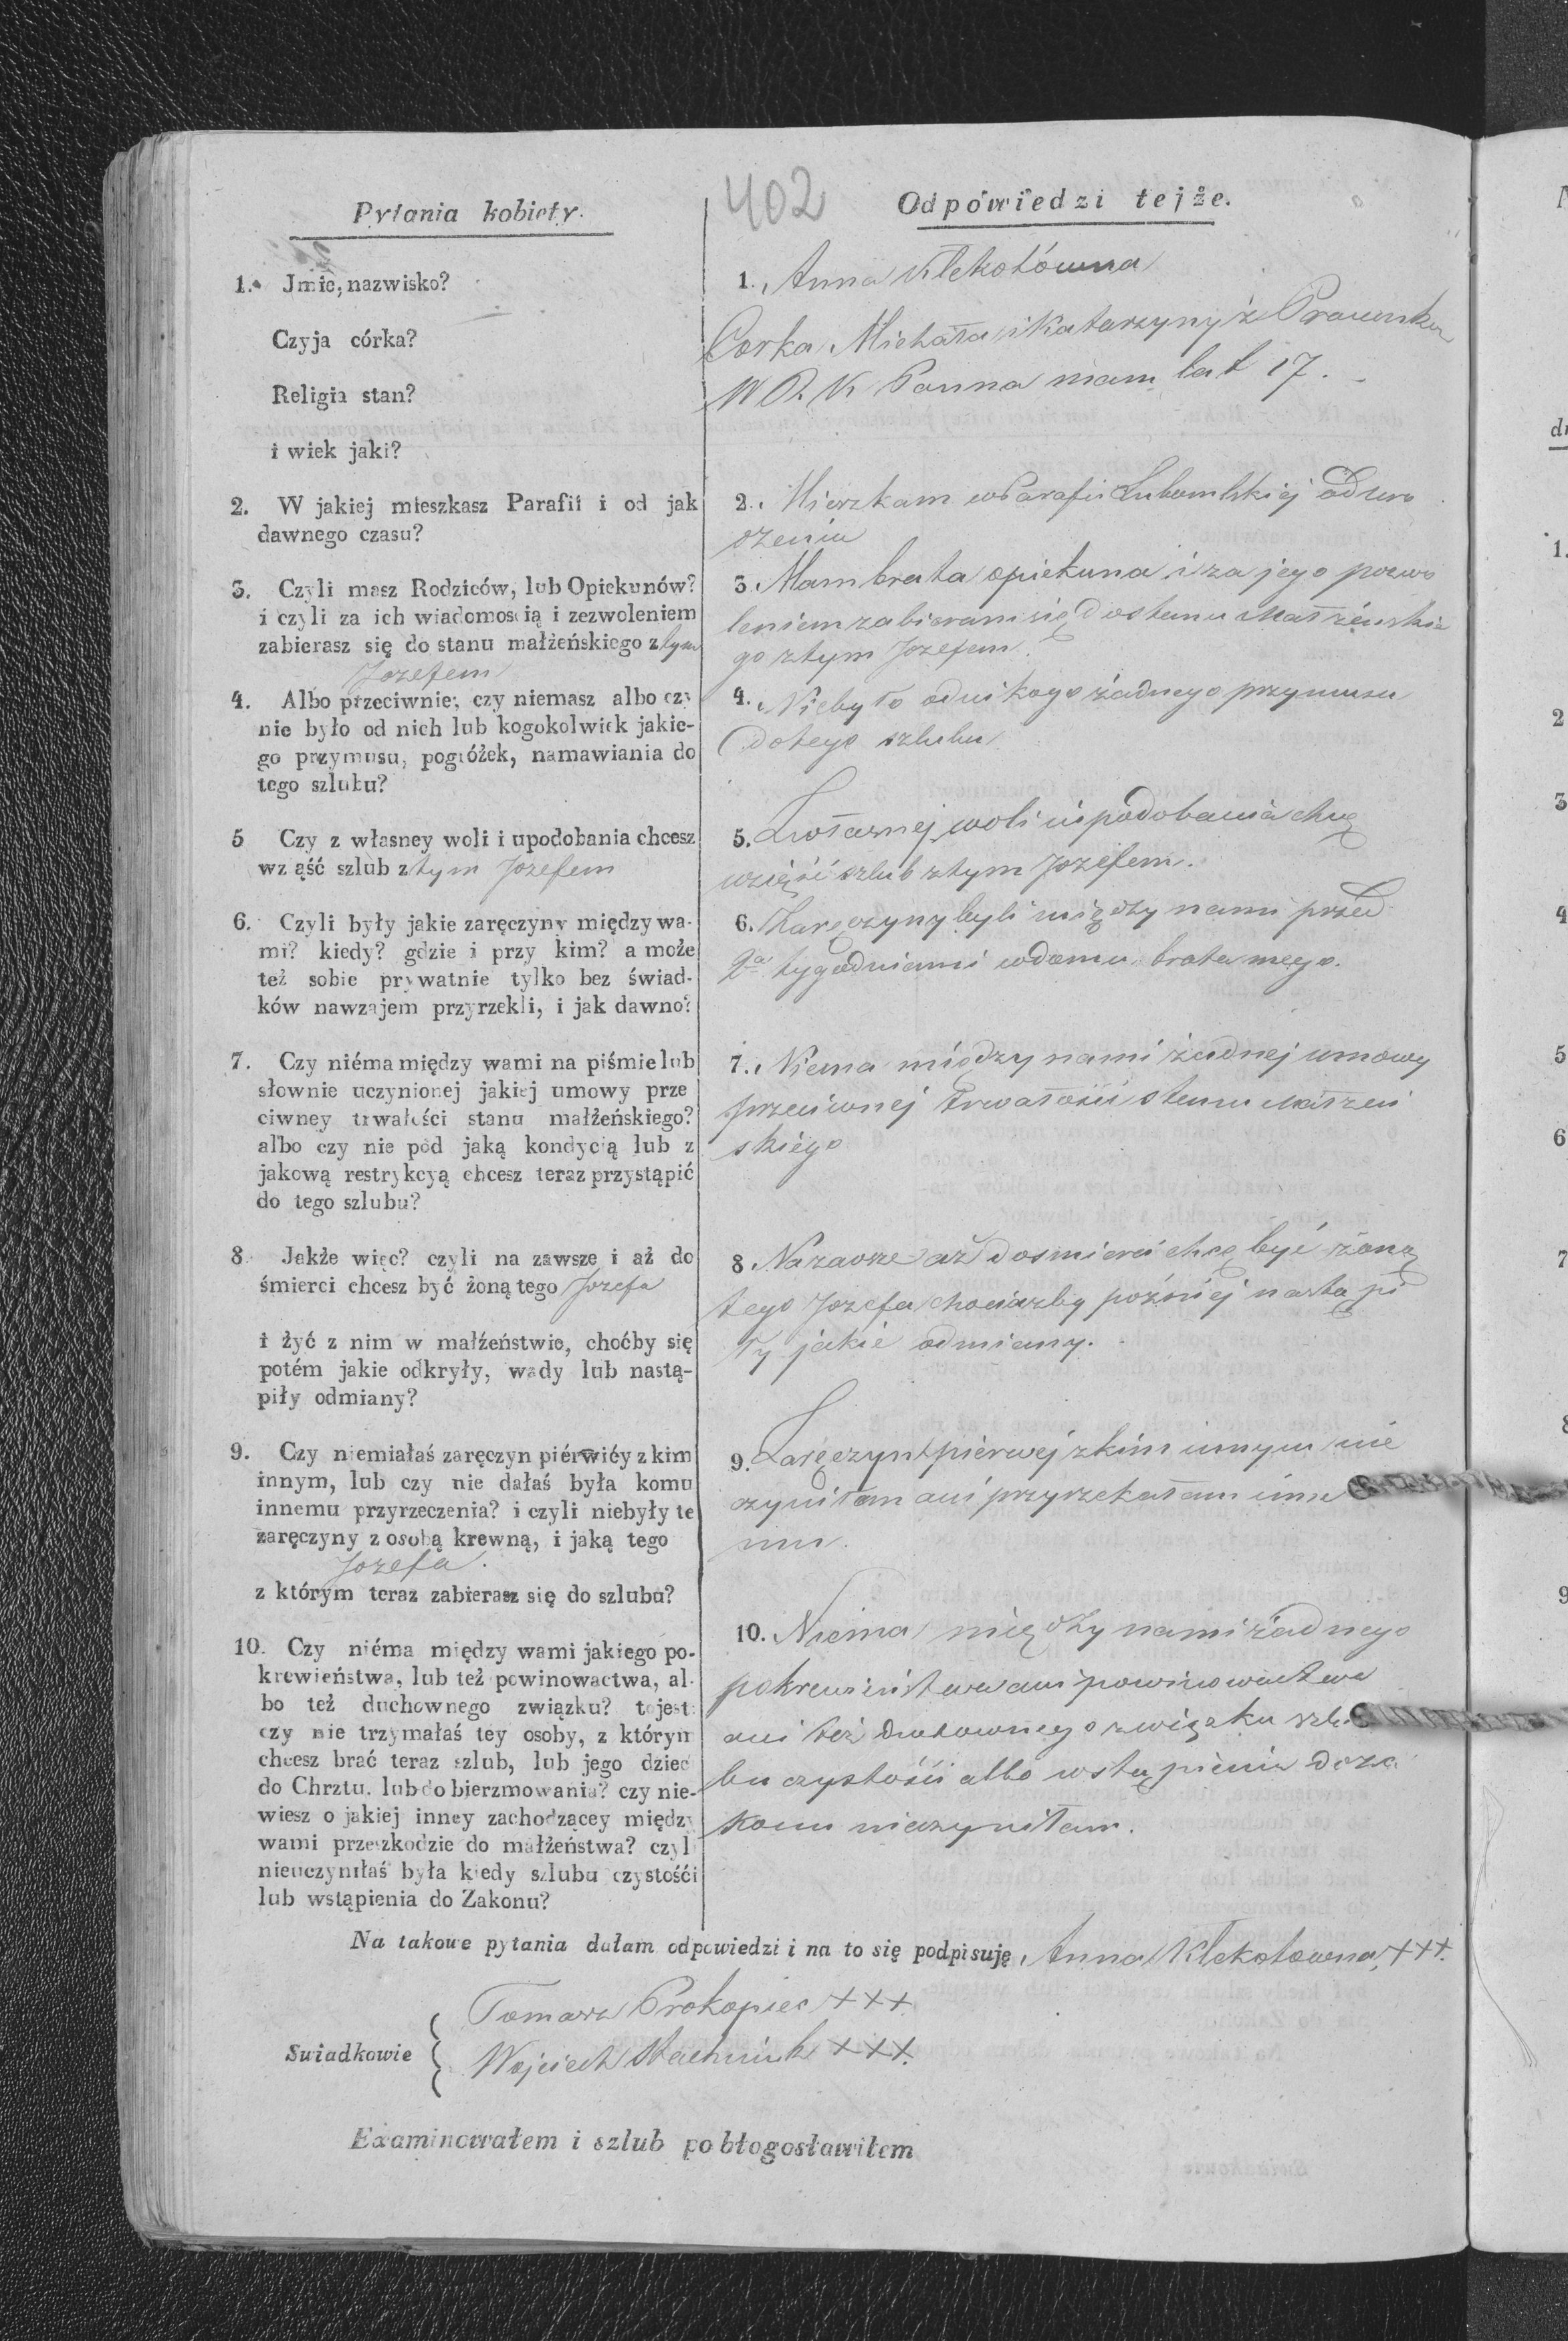 402
Pytania kobiety.
1. Jmie, nazwisko?
Czyja córka?
Religia stan?
i wiek jaki?
2. W jakiej mieszkasz Parafii i od jak
dawnego czasu?
3. Czyli masz Rodziców, lub Opiekunów?
i czyli za ich wiadomoscią i zezwoleniem
zabierasz się do stanu małżeńskiego z tym
Jozefem
4. Albo przeciwnie; czy niemasz albo czy
nie było od nich lub kogokolwiek jakie-
go przymusu, pogróżek, namawiania do
tego szlubu?
5 Czy z własney woli i upodobania chcesz
wziąść szlub z tym Jozefem
6. Czyli były jakie zaręczyny między wa-
mi? kiedy? gdzie i przy kim? a może
też sobie prywatnie tylko bez świad-
ków nawzajem przyrzekli, i jak dawno?
7. Czy niéma między wami na piśmie lub
słownie uczynionej jakiej umowy prze
ciwney trwałości stanu małżeńskiego?
albo czy nie pod jaką kondycią lub z
jakową restrykcyą chcesz teraz przystąpić
do tego szlubu?
8 Jakże więc? czyli na zawsze i aż do
śmierci chcesz być żoną tego Jozefa
i żyć z nim w małżeństwie, choćby się
potém jakie odkryły, wady lub nastą-
piły odmiany?
9. Czy niemiałaś zaręczyn piérwiéy z kim
innym, lub czy nie dałaś była komu
innemu przyrzeczenia? i czyli niebyły te
zaręczyny z osobą krewną, i jaką tego
Jozefa.
z którym teraz zabierasz się do szlubu?
10. Czy niéma między wami jakiego po-
krewieństwa, lub też powinowactwa, al-
bo też duchownego związku? tojest:
czy nie trzymałaś tey osoby, z którym
chcesz brać teraz szlub, lub jego dzieć
do Chrztu. lub do bierzmowania? czy nie-
wiesz o jakiej inney zachodzącey między
wami przeszkodzie do małżeństwa? czyli
nieuczyniłaś była kiedy szlubu czystośći
lub wstąpienia do Zakonu?
Odpowiedzi tejże.
1. Anna Klekotówna
Corka Michała i Katarzyny z
W R K Panna mam lat 17.
2. Mieszkam w Parafii Lubomlskiej od uro
dzenia
3. Mam brata opiekuna i za jego pozwo
leniem zabieram się do stanu Małżeńskie
go z tym Jozefem.
4. Nie było od nikogo żadnego przymusu
do tego szlubu
5. Z własnej woli i upodobania chcę
wziąść szlub z tym Jozefem.
6. Zaręczyny byli między nami przed
2a tygodniami w domu brata mego.
7. Niema między nami żadnej umowy
przeciwnej trwałości stanu Małżeń
skiego
8 Na zawsze aż do smierci chcę być żoną
tego Jozefa chociażby poźniej nastąpi
ły jakie odmiany.
9. Zaręczyn pierwej z kim innym nie
czyniłam ani przyrzekałam inne
mu.
10. Niema między nami żadnego
pokrewieństwa ani powinowactwa
ani też duchownego związku szlu
bu czystości albo wstąpienia do za
konu nieczyniłam.
Na takowe pytania dałam odpowiedzi i na to się podpisuję, Anna Klekotowna, +++.
Swiadkowie
Tomasz Prokopiec +++
Wojciech Stachniuk +++.
Examinowałem i szlub pobłogosławiłem